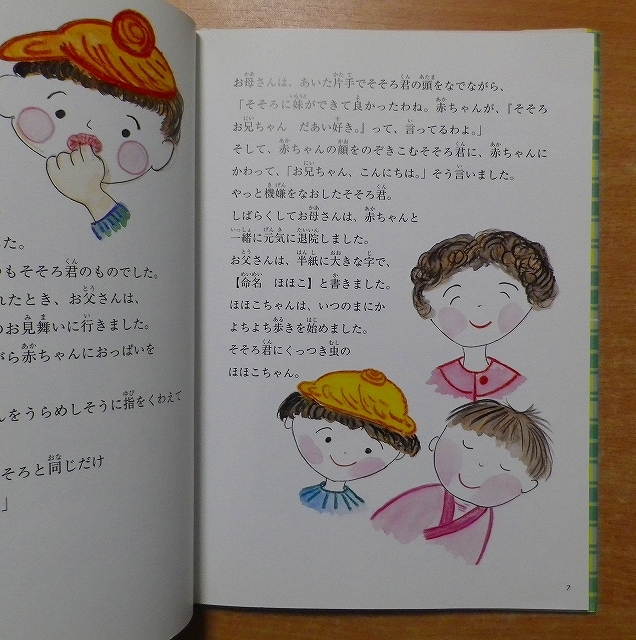 した。
つもそそろ君のものでした。
れたとき、お父さんは、
のお見舞いに行きました。
がら赤ちゃんにおっぱいを
んをうらめしそうに指をくわえて
そろと同じだけ
」
お母さんは、あいた片手でそそろ君の頭をなでながら、
「そそろに妹ができて良かったわね。赤ちゃんが、『そそろ
お兄ちゃん　だあい好き。』って、言ってるわよ。」
そして、赤ちゃんの顔をのぞきこむそそろ君に、赤ちゃんに
かわって、「お兄ちゃん、こんにちは。」そう言いました。
やっと機嫌をなおしたそそろ君。
しばらくしてお母さんは、赤ちゃんと
一緒に元気に退院しました。
お父さんは、半紙に大きな字で、
【命名　ほほこ】と書きました。
ほほこちゃんは、いつのまにか
よちよち歩きを始めました。
そそろ君にくっつき虫の
ほほこちゃん。
7